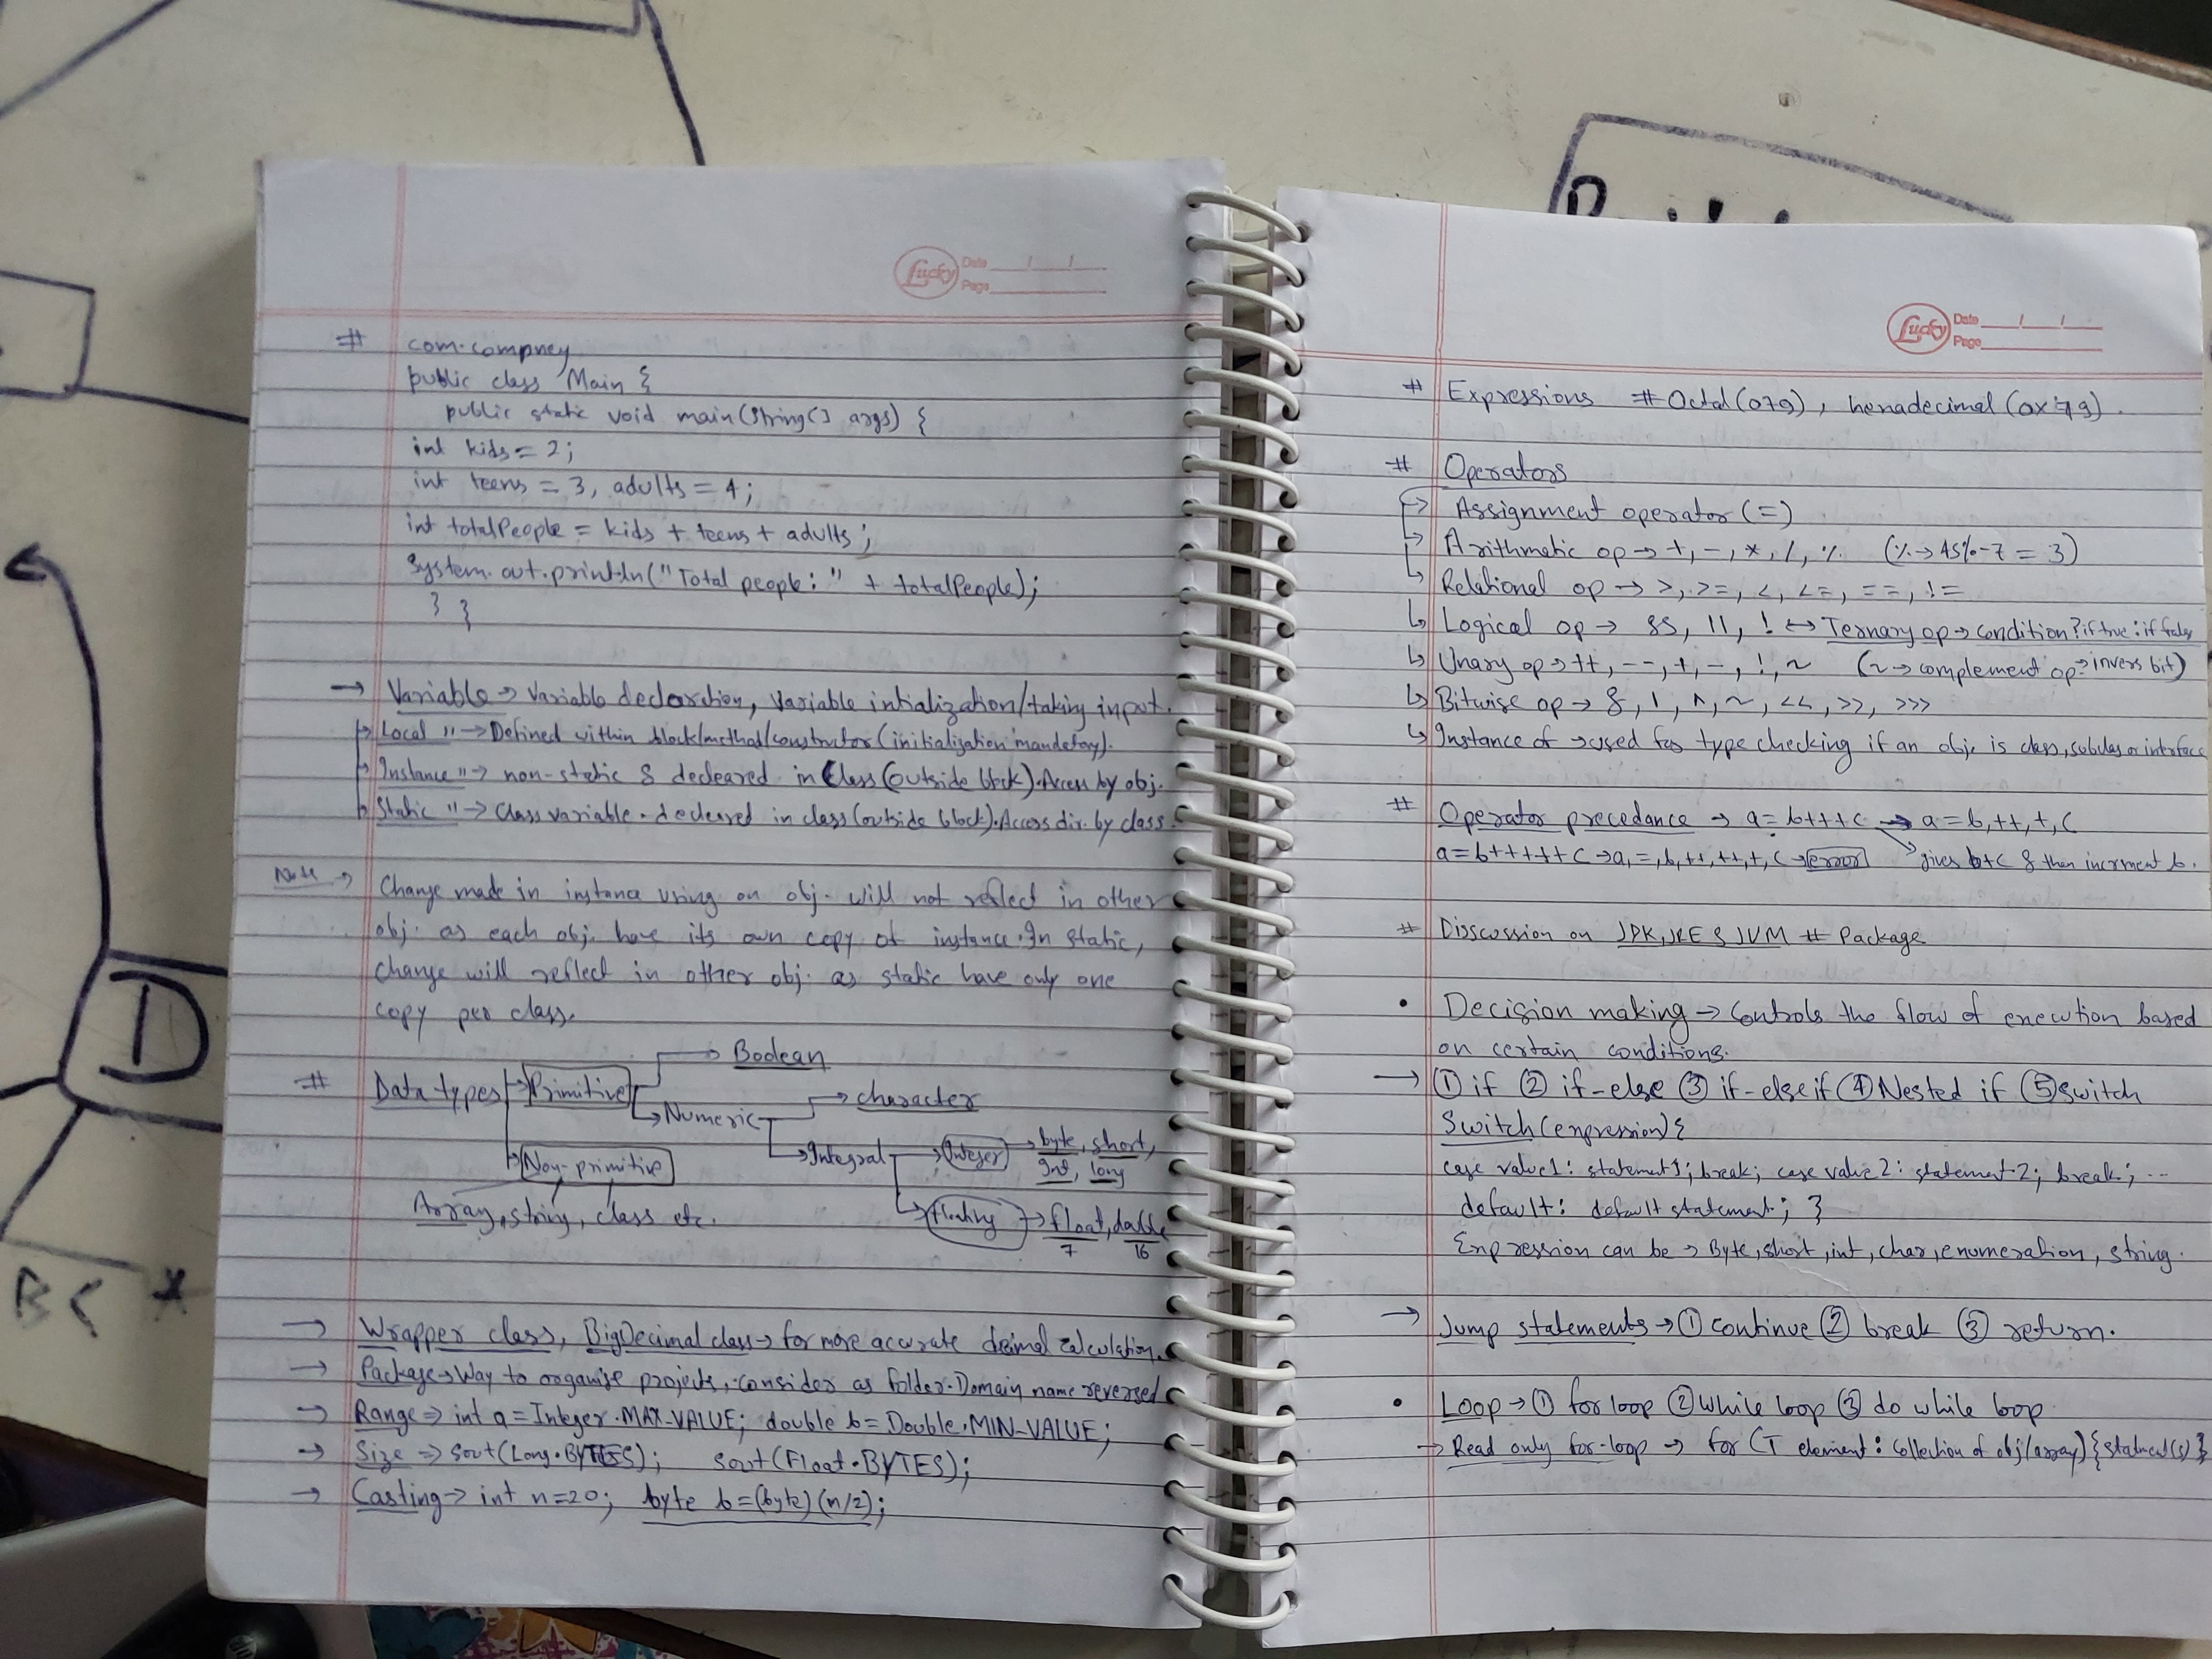 Lucky Date / /
Page
# com.compney
public class Main {
public static void main(String[] args) {
int kids = 2;
int teens = 3, adults = 4;
int totalPeople = kids + teens + adults;
System.out.println("Total people: " + totalPeople);
} }
→ Variable → Variable declaration, Variable intialization/taking input.
Local " → Defined within block/method/constructor (initialization mandatory).
Instance " → non-static & decleared in Class (outside block). Access by obj.
Static " → Class variable. decleared in class (outside block). Access dir. by class.
Note → Change made in instance using on obj. will not reflect in other
obj. as each obj. have its own copy of instance. In static,
change will reflect in other obj. as static have only one
copy per class.
→ Boolean
# Data types → Primitive → Numeric → character
→ Integral → Integer → byte, short,
Int, long
→ Non-primitive
Array, string, class etc.
→ floating → float, double
7 16
→ Wrapper class, BigDecimal class → for more accurate decimal calculation.
→ Package → Way to organise projects, consider as folder. Domain name reversed
→ Range → int a = Integer.MAX_VALUE; double b = Double.MIN_VALUE;
→ Size → sout(Long.BYTES); sout(Float.BYTES);
→ Casting → int n=20; byte b=(byte)(n/2);
Lucky Date / /
Page
# Expressions # Octal (079), hexadecimal (0x79).
# Operators
→ Assignment operator (=)
→ Arithmetic op → +, -, *, /, % (% → 45%7 = 3)
→ Relational op → >, >=, <, <=, ==, !=
↳ Logical op → &&, ||, ! ↔ Ternary op → condition ? if true : if false
↳ Unary op → ++, --, +, -, !, ~ (~ → complement op → invers bit)
↳ Bitwise op → &, |, ^, ~, <<, >>, >>>
↳ Instance of → used for type checking if an obj. is class, subclas or interface
# Operator precedance → a = b+++c → a = b, ++, +, c
a = b+++++c → a, =, b, ++, ++, +, c → error → gives b+c & then incrment b.
# Disscussion on JDK, JRE & JVM # Package
• Decision making → Controls the flow of execution based
on certain conditions.
→ ① if ② if-else ③ if-else if ④ Nested if ⑤ switch
Switch (expression) {
case value1: statement1; break; case value2: statement2; break; ...
default: default statement; }
Expression can be → Byte, short, int, char, enumeration, string.
→ Jump statements → ① continue ② break ③ return.
• Loop → ① for loop ② while loop ③ do while loop
→ Read only for-loop → for (T element : Collection of obj/array) {statment(s)}
D
BC *